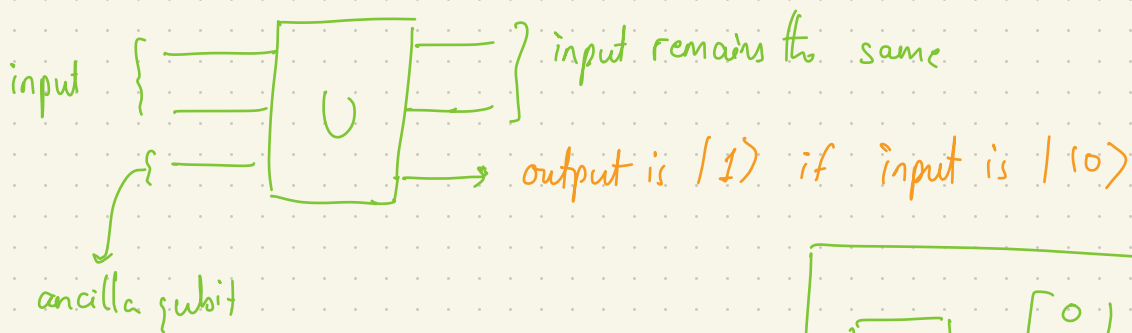 input
U
input remains the same
output is |1⟩ if input is |10⟩
ancilla qubit
[0]